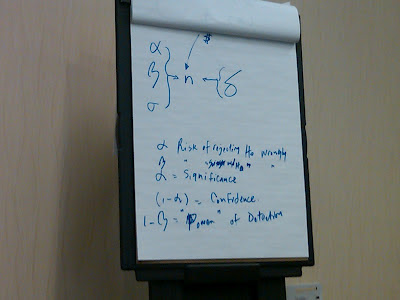 $
α
β → n ← δ
σ
α Risk of rejecting Ho wrongly
β " " "
α = Significance
(1-α) = Confidence
1-β = "Power" of Detection